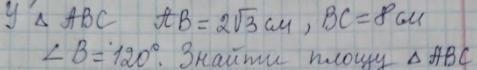 У △ ABC AB = 2√3 см, BC = 8 см
∠B = 120°. Знайти площу △ ABC